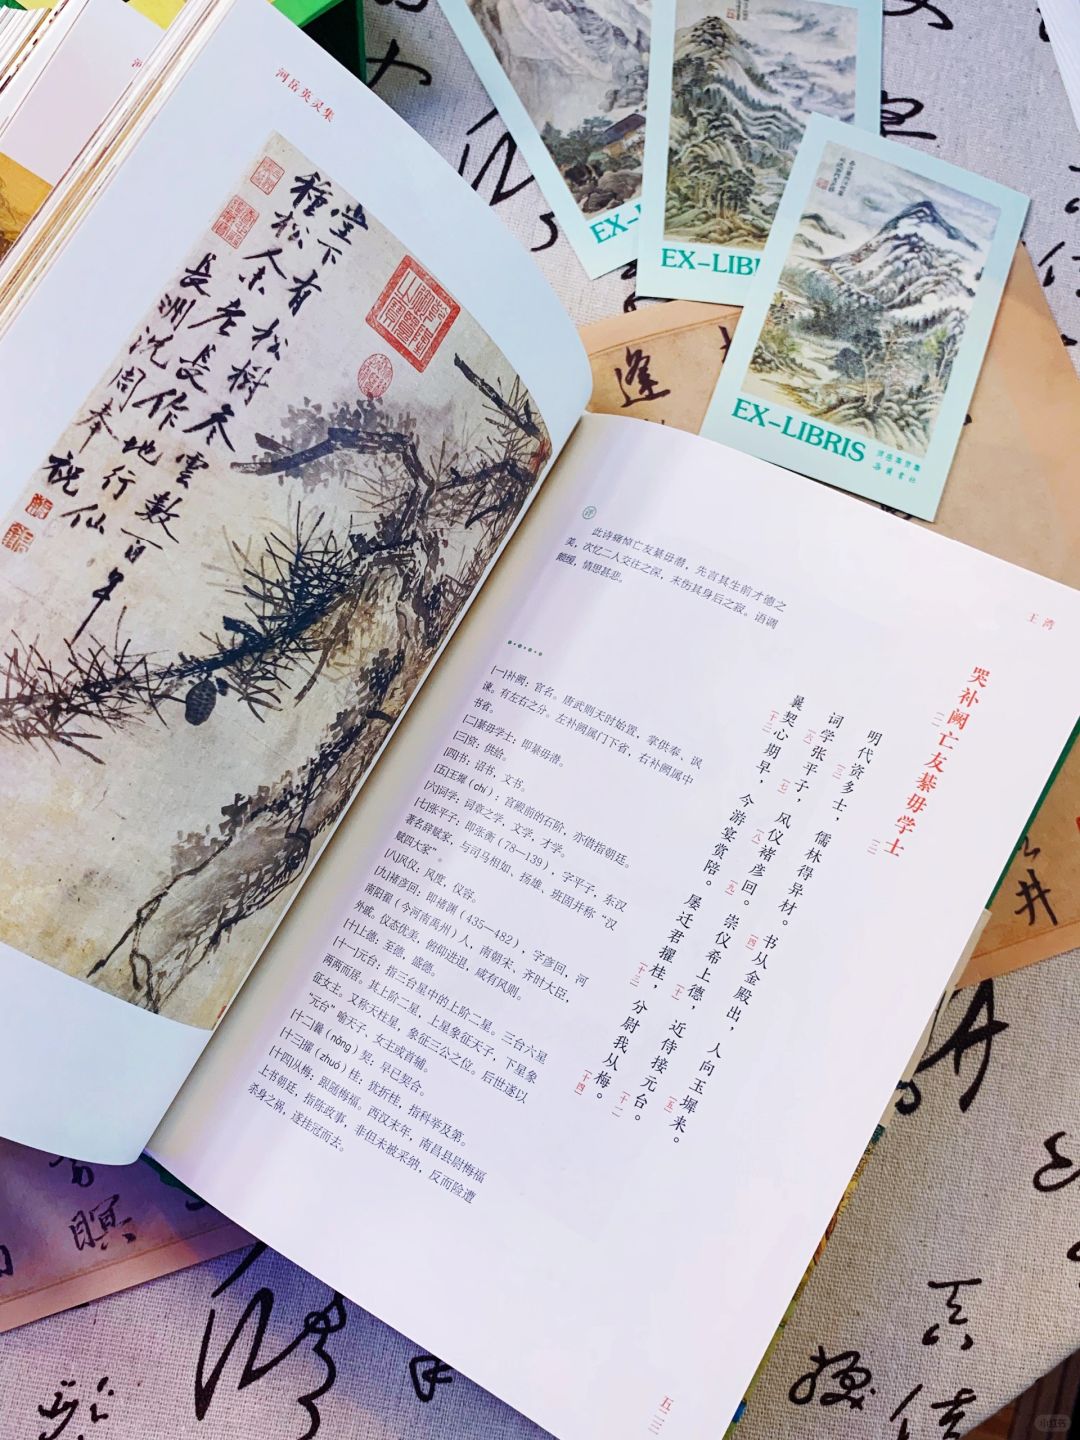 河岳英灵集
堂下有松樹參雲數百年
種松人未老長作地行仙
長洲沈周奉祝
EX-LIBRIS
EX-LIBRI
EX-L
逢
王湾
哭补阙[一]亡友綦毋学士[二]
明代资[三]多士，儒林得异材。书[四]从金殿出，人向玉墀[五]来。
词学[六]张平子[七]，风仪[八]褚彦回[九]。崇仪希上德[十]，近侍接元台[十一]。
曩契[十二]心期早，今游宴赏陪。屡迁君擢桂[十三]，分尉我从梅[十四]。
评
此诗痛悼亡友綦毋潜，先言其生前才德之
美，次忆二人交往之深，末伤其身后之寂。语调
颇缓，情思甚悲。
[一]补阙：官名。唐武则天时始置，掌供奉、讽
谏。有左右之分。左补阙属门下省，右补阙属中
书省。
[二]綦毋学士：即綦毋潜。
[三]资：供给。
[四]书：诏书，文书。
[五]玉墀（chí）：宫殿前的石阶，亦借指朝廷。
[六]词学：词章之学，文学，才学。
[七]张平子：即张衡（78—139），字平子，东汉
著名辞赋家，与司马相如、扬雄、班固并称“汉
赋四大家”。
[八]风仪：风度，仪容。
[九]褚彦回：即褚渊（435—482），字彦回，河
南阳翟（今河南禹州）人，南朝宋、齐时大臣，
外戚。仪态优美，俯仰进退，咸有风则。
[十]上德：至德，盛德。
[十一]元台：指三台星中的上阶二星。三台六星
两两而居。其上阶二星，上星象征天子，下星象
征女主。又称天柱星，象征三公之位。后世遂以
“元台”喻天子、女主或首辅。
[十二]曩（nǎng）契：早已契合。
[十三]擢（zhuó）桂：犹折桂，指科举及第。
[十四]从梅：跟随梅福。西汉末年，南昌县尉梅福
上书朝廷，指陈政事，非但未被采纳，反而险遭
杀身之祸，遂挂冠而去。
五二三
暝
小红书